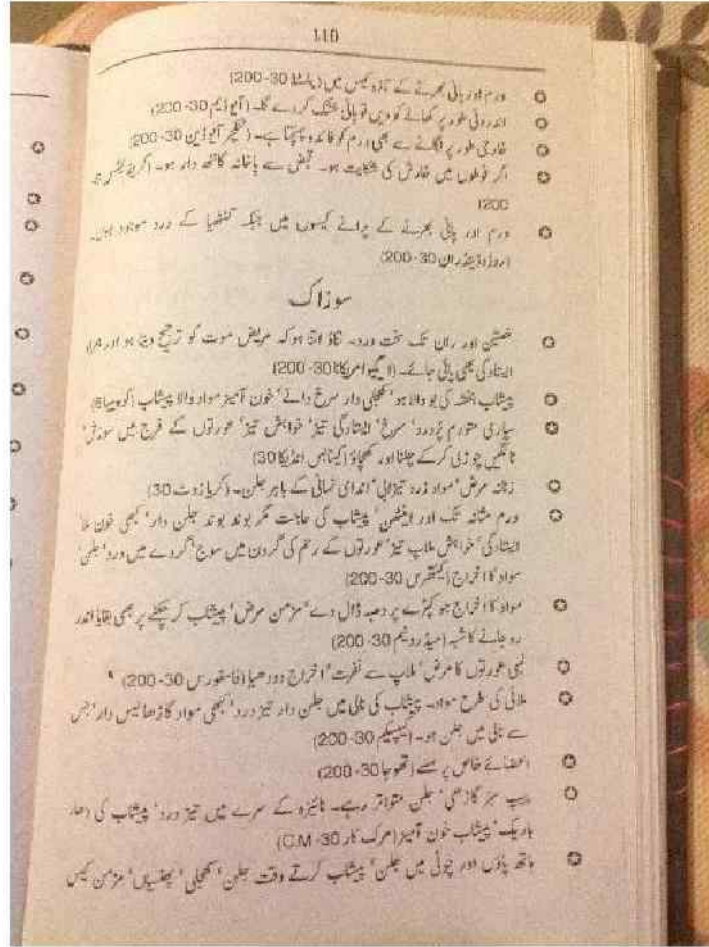 110
ورم اور پانی بھرنے کے تازہ کیس میں (پلسٹلا 30-200)
اندرونی طور پر کھانے کو دیں تو پانی خشک کر دے گا۔ (آیوڈیم 30-200)
خارجی طور پر لگانے سے بھی ورم کو فائدہ پہنچتا ہے۔ (ٹنکچر آیوڈین 30-200)
اگر فوطوں میں خارش کی شکایت ہو۔ قبض سے پاخانہ گانٹھ دار ہو۔ (گریفائٹس
200)
ورم اور پانی بھرنے کے پرانے کیسوں میں جبکہ گنٹھیا کے درد موجود ہوں۔
(روڈوڈینڈران 30-200)
سوزاک
خصیتین اور ران تک سخت درد۔ تناؤ اتنا ہو کہ مریض موت کو ترجیح دیتا ہو اور
ایستادگی بھی پائی جائے۔ (لا امریکانا 30-200)
پیشاب بنفشہ کی بو والا ہو' کھجلی دار سرخ دانے' خون آمیز مواد والا پیشاب (کوپیبا 6)
سپاری متورم پُردرد' سرخ' ایستادگی تیز' خواہش تیز' عورتوں کے فرج میں سوزش'
ٹانگیں چوڑی کرکے چلنا اور کھچاؤ (کینابس انڈیکا 30)
زنانہ مرض' مواد زرد تیزابی' اندام نہانی کے باہر جلن۔ (کریازوٹ 30)
ورم مثانہ تک اور اینٹھن' پیشاب کی حاجت مگر بوند بوند جلن دار' کبھی خون ملا'
ایستادگی' خواہش ملاپ تیز' عورتوں کے رحم کی گردن میں سوج' گردے میں درد'
مواد کا اخراج (کینتھرس 30-200)
مواد کا اخراج جو کپڑے پر دھبہ ڈال دے' مزمن مرض' پیشاب کر چکنے پر بھی بقایا اندر
رہ جانے کا شبہ (سیڈرونیم 30-200)
لمبی عورتوں کا مرض' ملاپ سے نفرت' اخراج دودھیا (فاسفورس 30-200)
ملائی کی طرح مواد۔ پیشاب کی نالی میں جلن دار تیز درد' کبھی مواد گاڑھا لیس دار' جس
سے نالی میں جلن ہو۔ (کیپسیکم 30-200)
اعضائے خاص پر مسے (تھوجا 30-200)
پیپ سبز گاڑھی' جلن متواتر رہے۔ نائیزہ کے سرے میں تیز درد' پیشاب کی دھار
باریک' پیشاب خون آمیز (مرک کار 30-C.M)
ہاتھ پاؤں اور چوٹی میں جلن' پیشاب کرتے وقت جلن' کھجلی' پھنسیاں' مزمن کیس